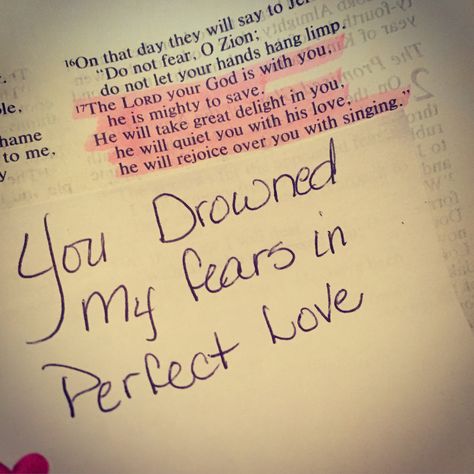 16On that day they will say to Je
"Do not fear, O Zion;
do not let your hands hang limp.
17The LORD your God is with you,
he is mighty to save.
He will take great delight in you,
he will quiet you with his love,
he will rejoice over you with singing."
hame
to me,
You Drowned
My fears in
Perfect Love